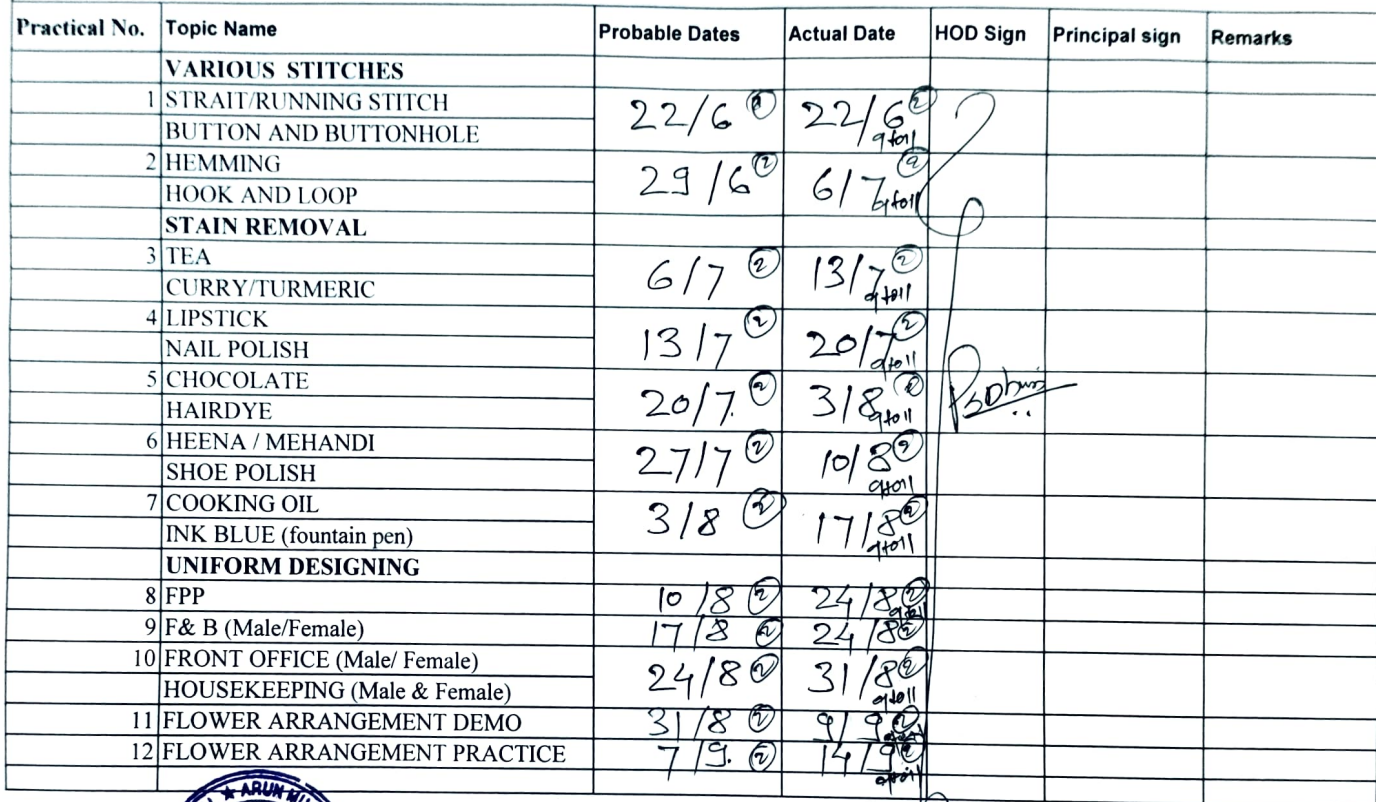 Practical No. Topic Name Probable Dates Actual Date HOD Sign Principal sign Remarks
VARIOUS STITCHES
1 STRAIT/RUNNING STITCH 22/6 ② 22/6 ② 9 to 11
BUTTON AND BUTTONHOLE
2 HEMMING 29/6 ② 6/7 ② 9 to 11
HOOK AND LOOP
STAIN REMOVAL
3 TEA 6/7 ② 13/7 ② 9 to 11
CURRY/TURMERIC
4 LIPSTICK 13/7 ② 20/7 ② 9 to 11
NAIL POLISH
5 CHOCOLATE 20/7. ② 3/8 ② 9 to 11
HAIRDYE
6 HEENA / MEHANDI 27/7 ② 10/8 ② 9 to 11
SHOE POLISH
7 COOKING OIL 3/8 ② 17/8 ② 9 to 11
INK BLUE (fountain pen)
UNIFORM DESIGNING
8 FPP 10/8 ② 24/8 ② 9 to 11
9 F& B (Male/Female) 17/8 ② 24/8 ②
10 FRONT OFFICE (Male/ Female) 24/8 ② 31/8 ② 9 to 11
HOUSEKEEPING (Male & Female)
11 FLOWER ARRANGEMENT DEMO 31/8 ② 9/9 ②
12 FLOWER ARRANGEMENT PRACTICE 7/9. ② 14/9 ② 9 to 11
★ ARUN